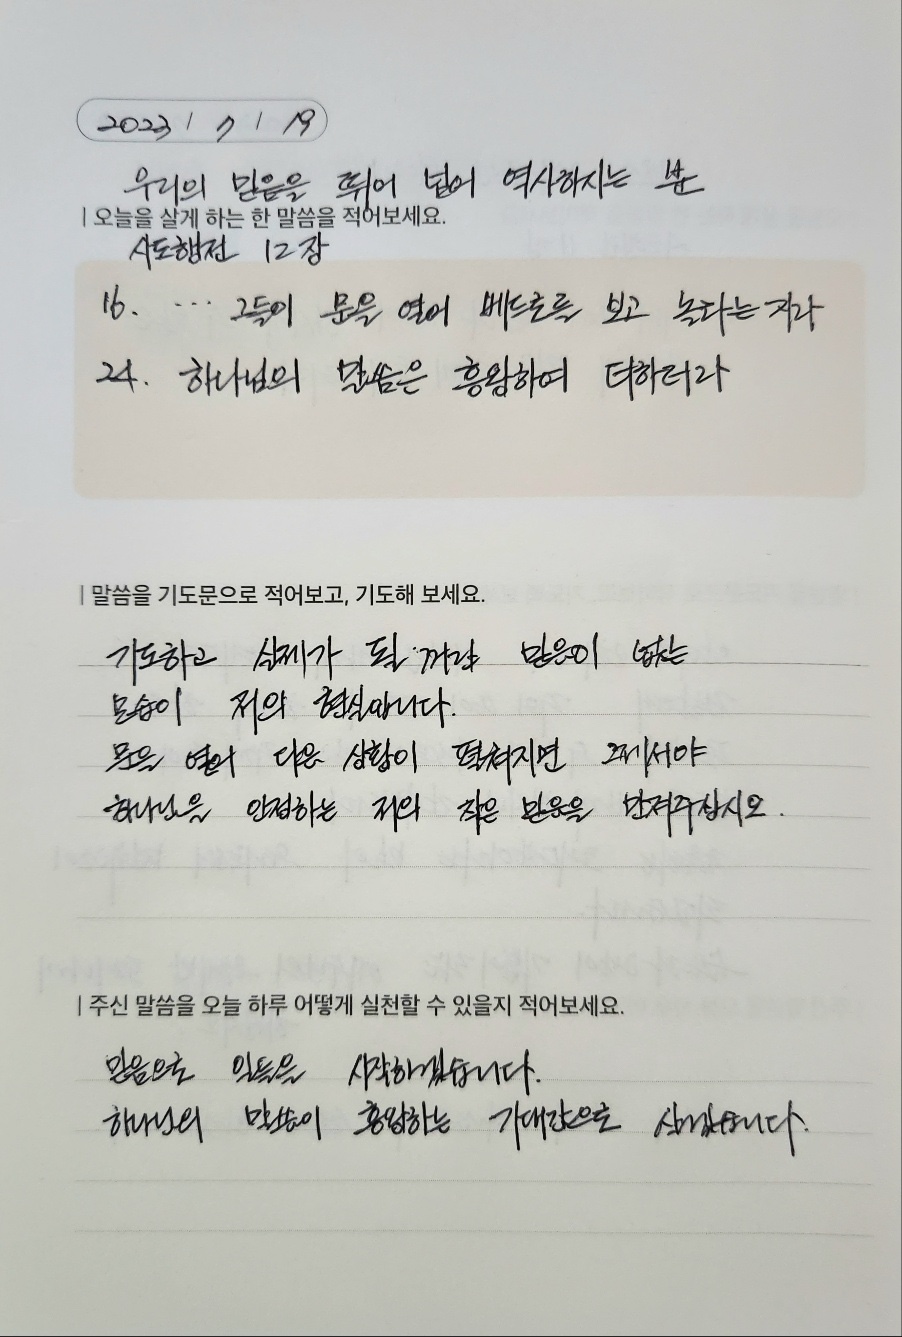 2023 / 7 / 19
우리의 믿음을 뛰어 넘어 역사하시는 분
| 오늘을 살게 하는 한 말씀을 적어보세요.
사도행전 12장
16. ... 그들이 문을 열어 베드로를 보고 놀라는지라
24. 하나님의 말씀은 흥왕하여 더하더라
| 말씀을 기도문으로 적어보고, 기도해 보세요.
기도하고 실제가 될 꺼란 믿음이 없는
모습이 저의 현실입니다.
문을 열어 다음 상황이 펼쳐지면 그제서야
하나님을 인정하는 저의 작은 믿음을 만져주십시오.
| 주신 말씀을 오늘 하루 어떻게 실천할 수 있을지 적어보세요.
믿음으로 일들을 시작하겠습니다.
하나님의 말씀이 흥왕하는 기대감으로 살겠습니다.